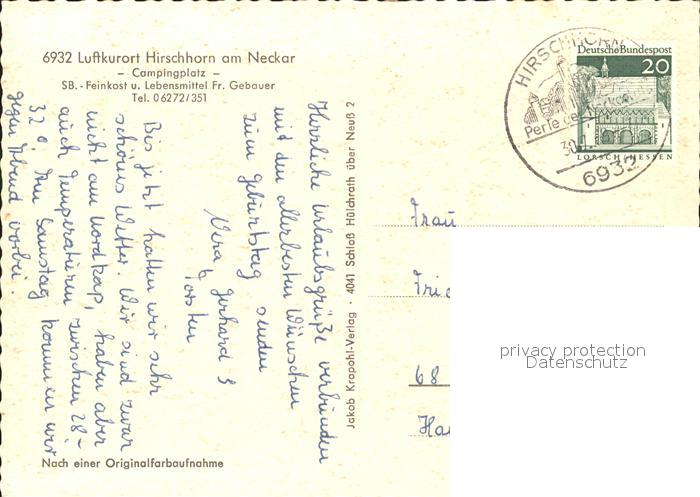 6932 Luftkurort Hirschhorn am Neckar
– Campingplatz –
SB.-Feinkost u. Lebensmittel Fr. Gebauer
Tel. 06272/351
Herzliche Urlaubsgrüße verbunden
mit den allerbesten Wünschen
zum Geburtstag senden
Vera, Gerhard &
Torsten
Bis jetzt hatten wir sehr
schönes Wetter. Wir sind zwar
nicht am Nordkap, haben aber
auch Temperaturen zwischen 28-
32°. Am Samstag kommen wir
gegen Abend vorbei
Nach einer Originalfarbaufnahme
Jakob Krapohl-Verlag · 4041 Schloß Hülchrath über Neuß 2
HIRSCHHORN
Perle des Neckar
30
6932
Deutsche Bundespost
20
LORSCH/HESSEN
Frau
68
privacy protection
Datenschutz